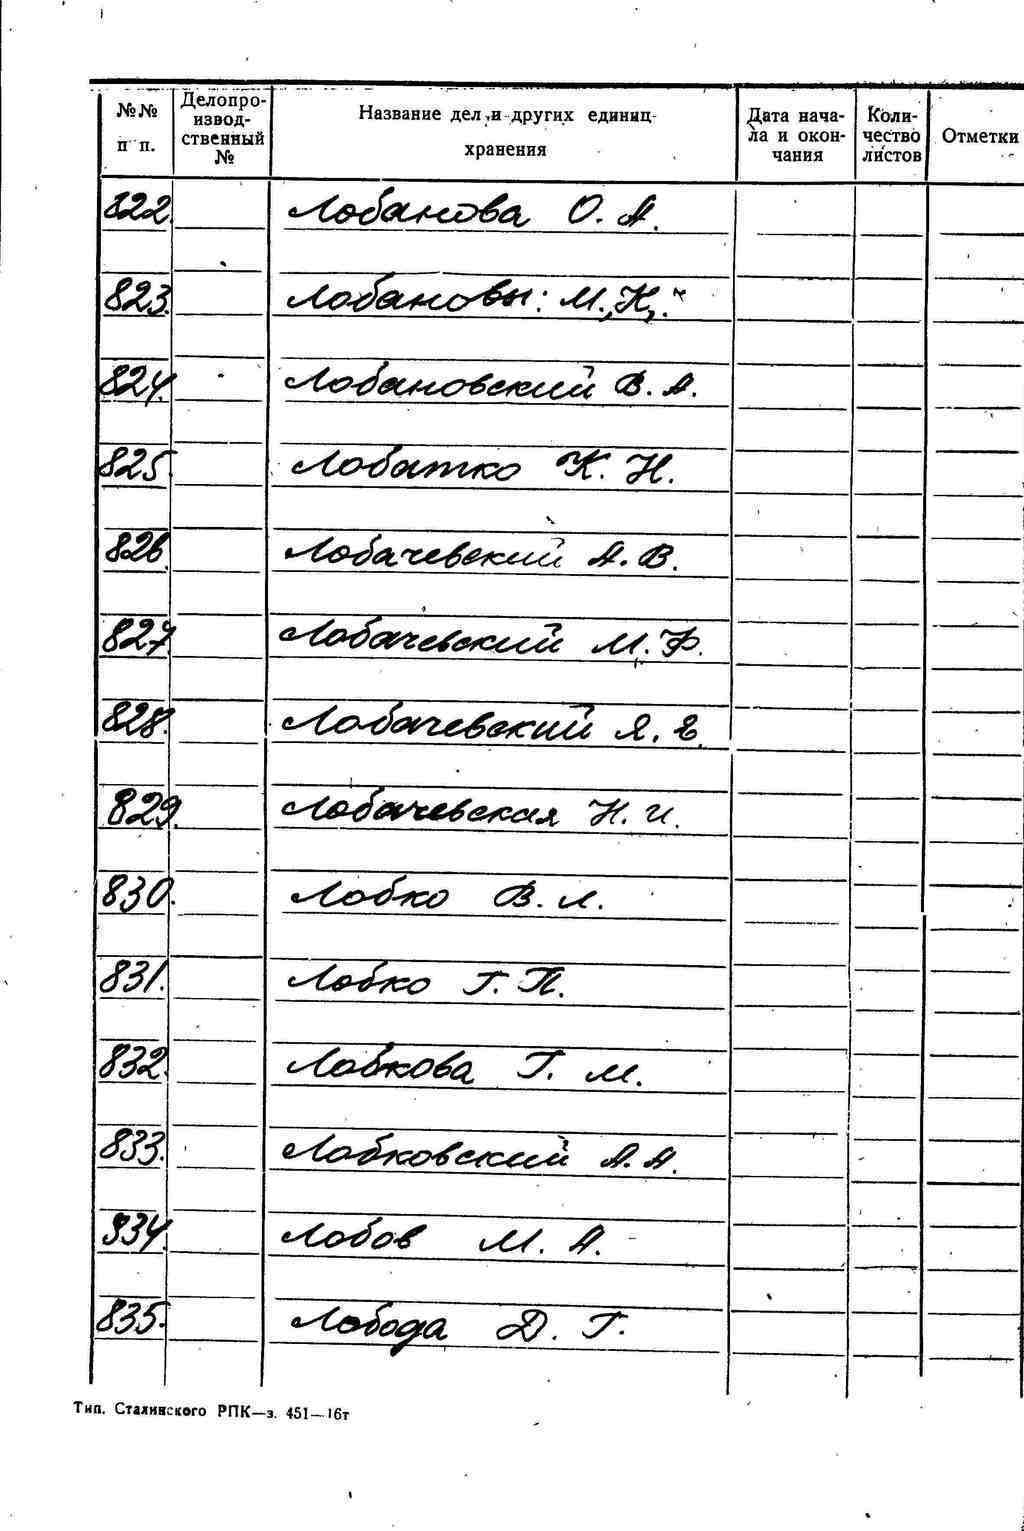 №№ п п. Делопроизводственный № Название дел и других единиц хранения Дата начала и окончания Количество листов Отметки
822. Лобанова О. А.
823. Лобановы: М., Н.,
824. Лобановский В. А.
825. Лобатко К. Н.
826. Лобачевский А. В.
827. Лобачевский М. Ф.
828. Лобачевский Я.
829. Лобачевская Н. И.
830. Лобко В. Л.
831. Лобко Г. П.
832. Лобкова Г. М.
833. Лобковский А. А.
834. Лобов М. А.
835. Лобода Д. Г.
Тип. Сталинского РПК—з. 451—16т